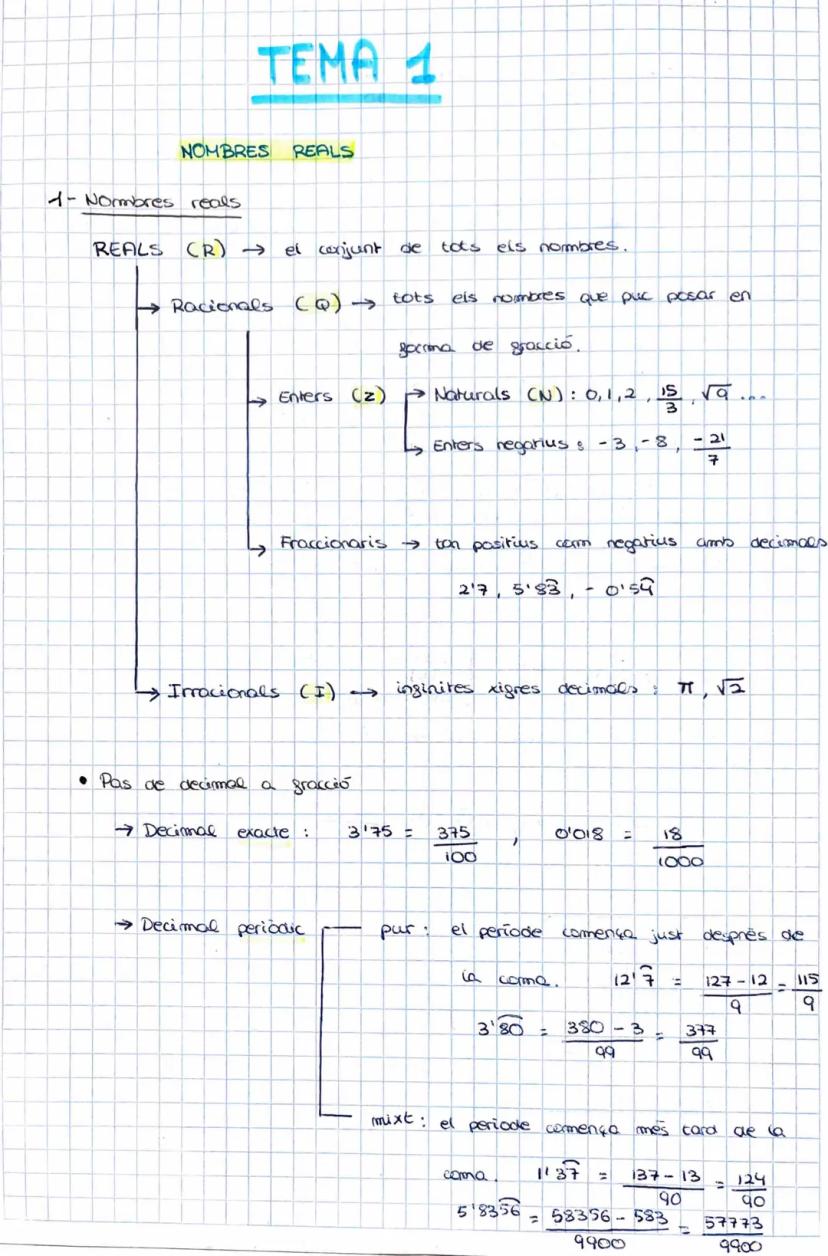 TEMA 1
NOMBRES REALS
1- Nombres reals
REALS (R) → el conjunt de tots els nombres.
→ Racionals (Q) → tots els nombres que puc posar en
forma de fracció.
→ Enters (Z) → Naturals (N) : 0, 1, 2, 15/3, √9 ...
→ Enters negatius : -3, -8, -21/7
→ Fraccionaris → tan positius com negatius amb decimals
2'7, 5'83̂, - 0'59̂
→ Irracionals (I) → infinites xifres decimals : π, √2
• Pas de decimal a fracció
→ Decimal exacte : 3'75 = 375/100 , 0'018 = 18/1000
→ Decimal periòdic — pur : el període comença just després de
la coma. 12'7̂ = 127-12/9 = 115/9
3'8̂0̂ = 380-3/99 = 377/99
mixt : el periode comença més tard de la
coma. 1'37̂ = 137-13/90 = 124/90
5'835̂6̂ = 58356-583/9900 = 57773/9900